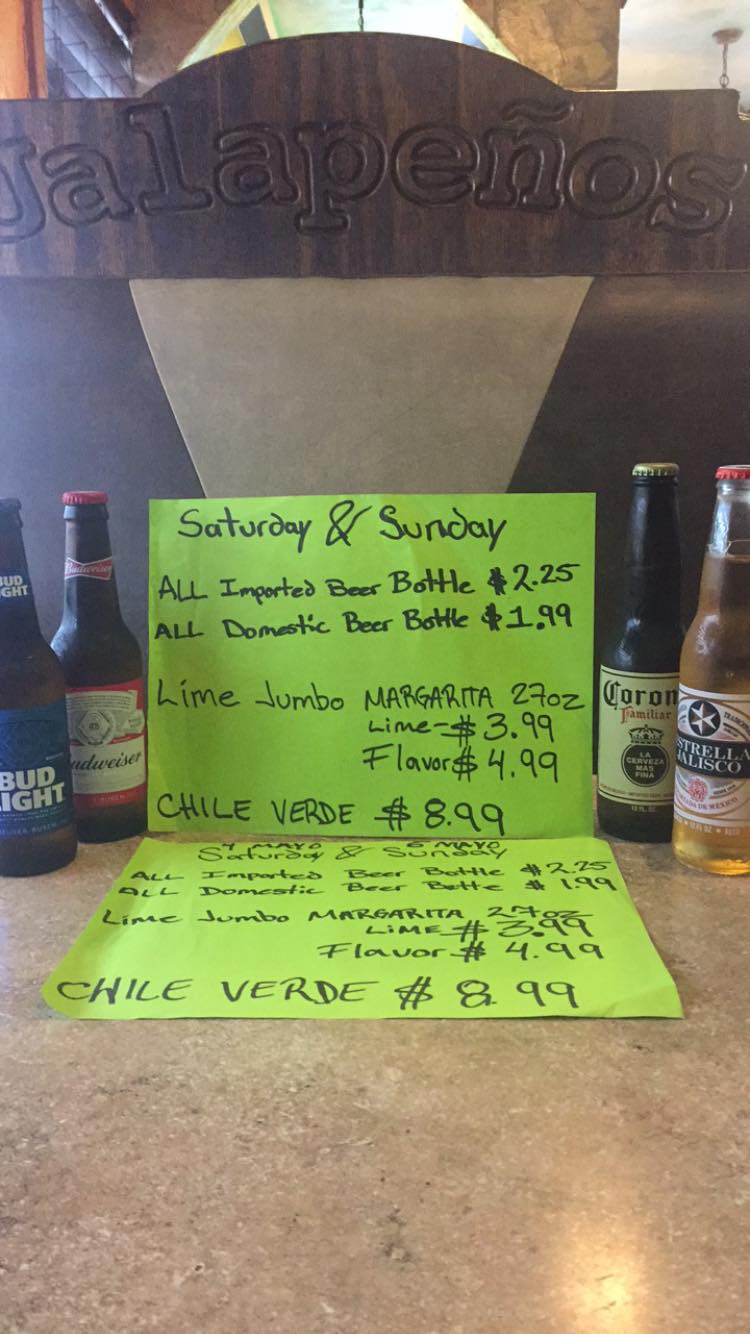 Jalapeños
Saturday & Sunday
ALL Imported Beer Bottle $2.25
ALL Domestic Beer Bottle $1.99
Lime Jumbo MARGARITA 27oz
Lime-$3.99
Flavor$4.99
CHILE VERDE $8.99
MAYO MAYO
Saturday & Sunday
ALL Imported Beer Bottle $2.25
ALL Domestic Beer Bottle $1.99
Lime Jumbo MARGARITA 27oz
LIME-$3.99
Flavor-$4.99
CHILE VERDE $8.99
BUD
IGHT
BUD
IGHT
Budweiser
udweiser
Coron
Familiar
LA
CERVEZA
MAS
FINA
STRELLA
JALISCO